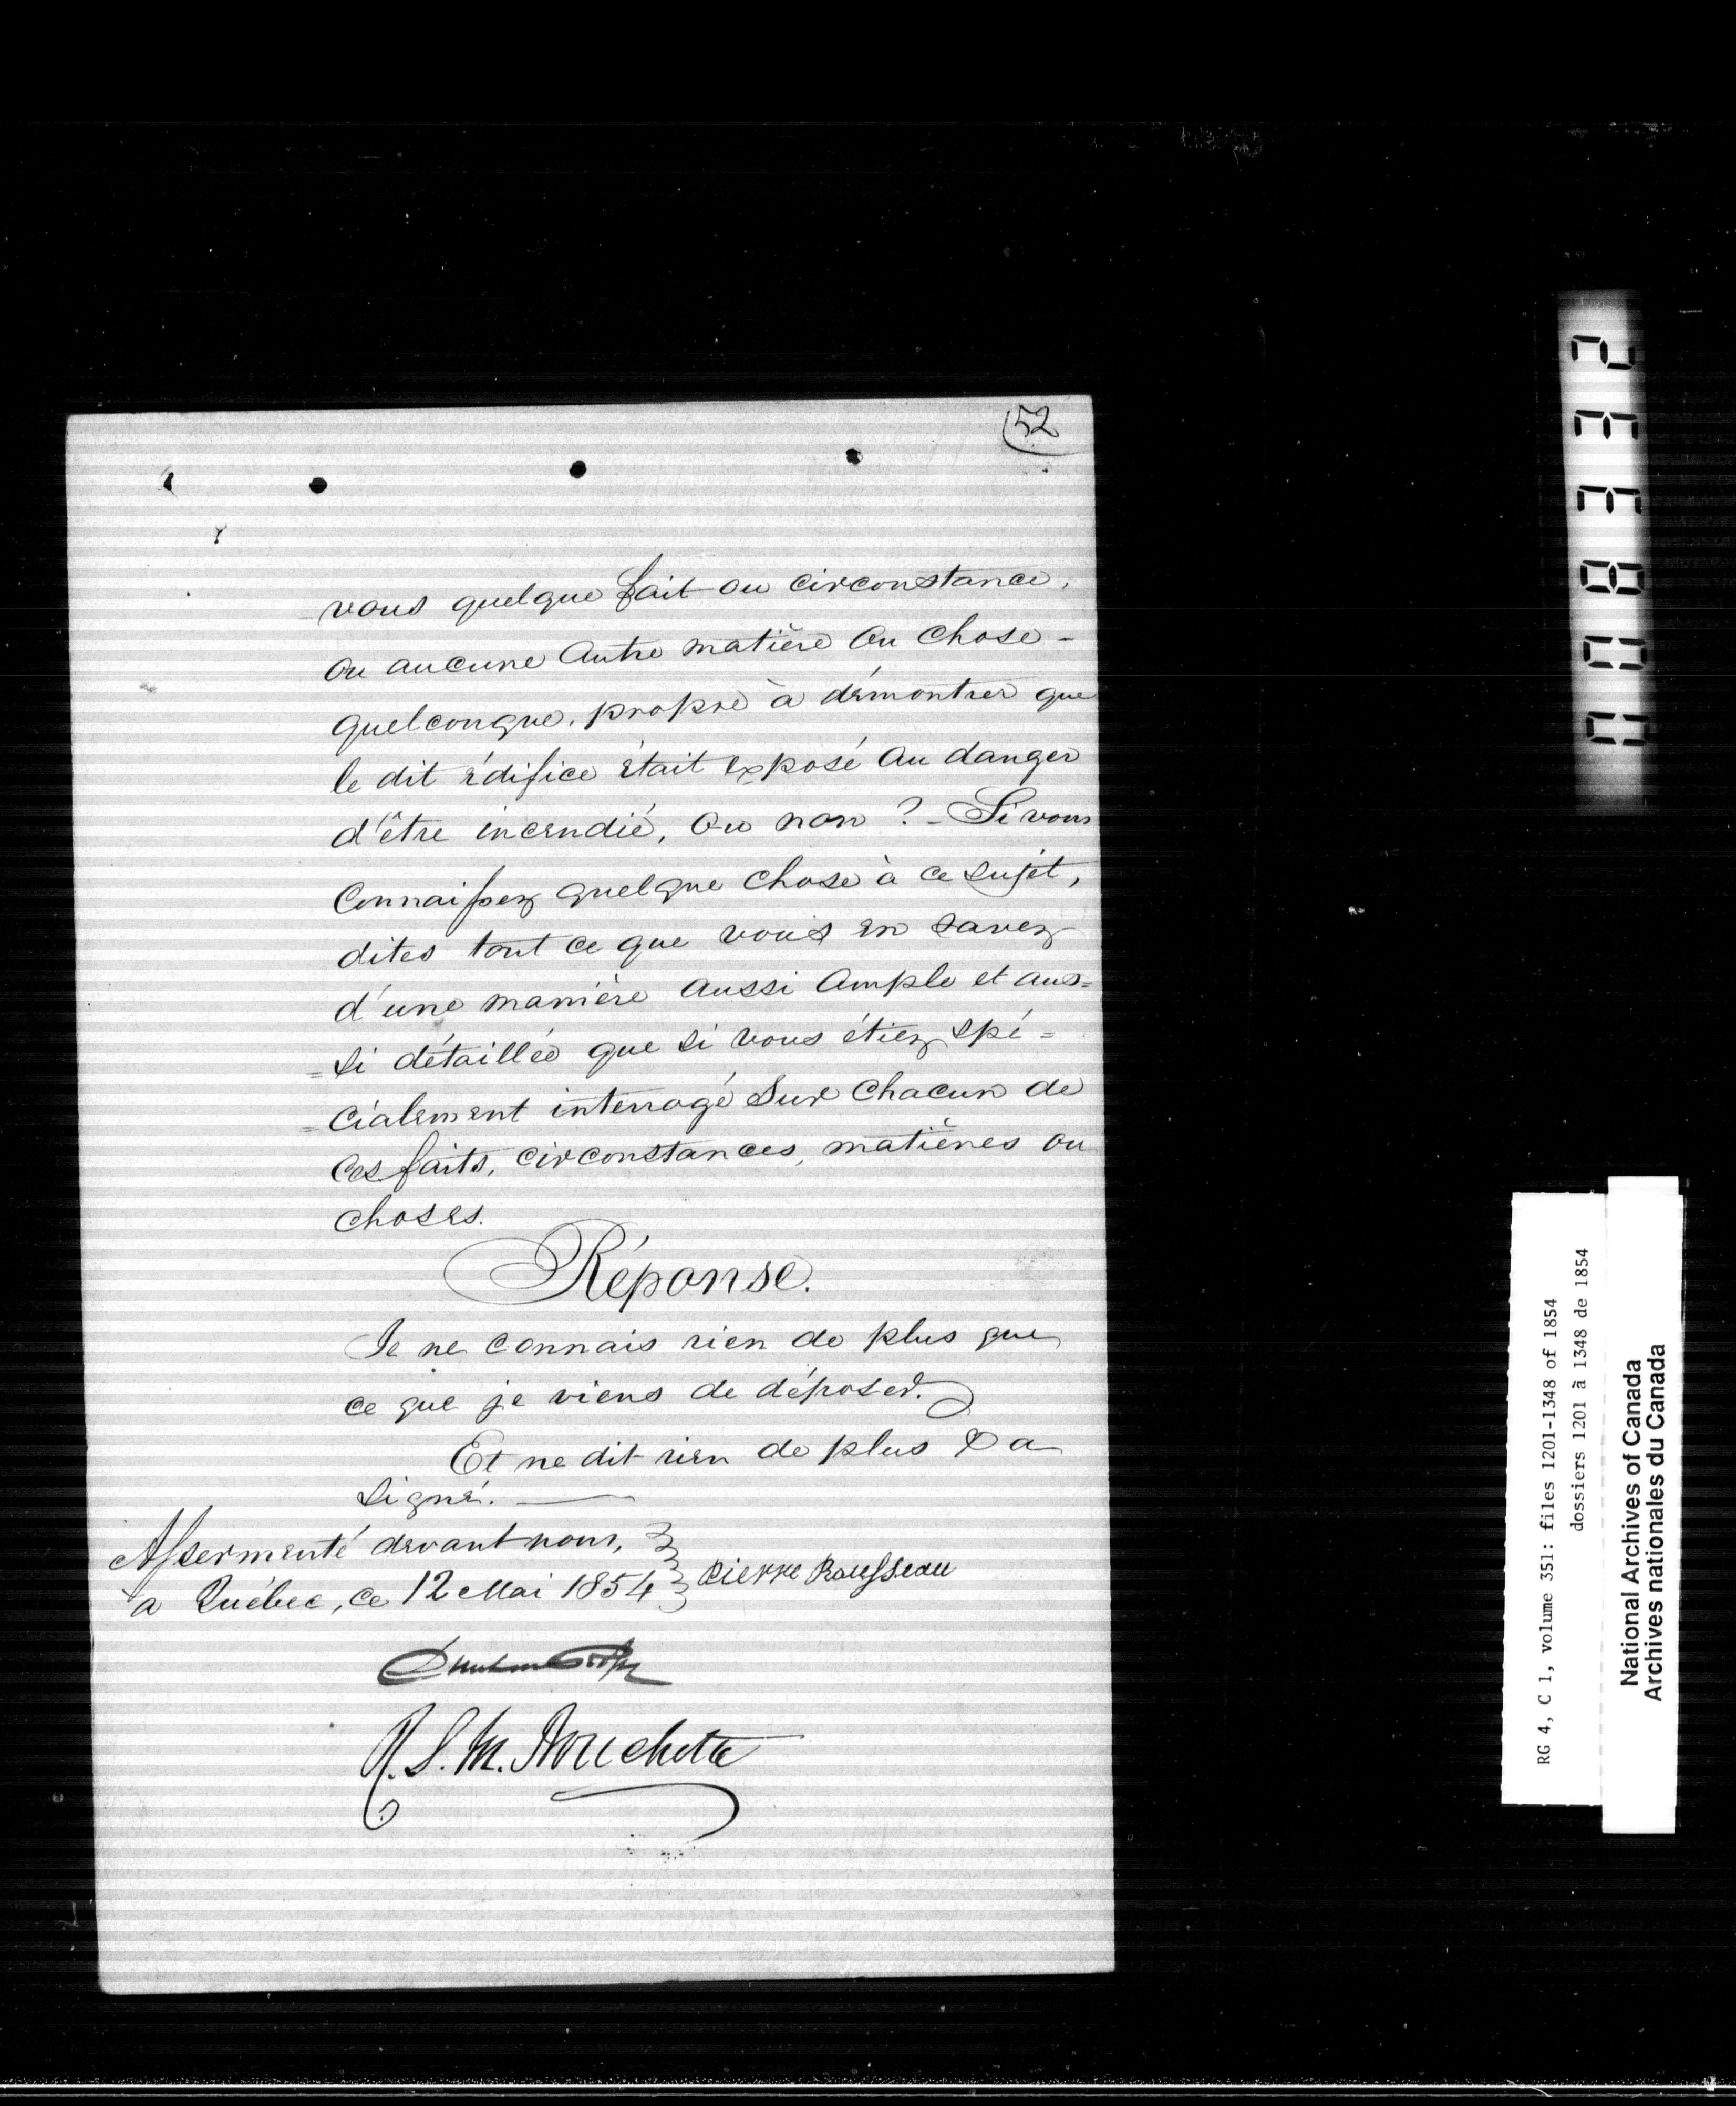 52
vous quelque fait ou circonstance,
ou aucune autre matière ou chose -
quelconque, propre à démontrer que
le dit édifice était exposé au danger
d'être incendié, ou non ? - Si vous
connaissez quelque chose à ce sujet,
dites tout ce que vous en savez
d'une manière aussi ample et aus=
=si détaillée que si vous étiez spé=
=cialement interrogé sur chacun de
ces faits, circonstances, matières ou
choses.
Réponse.
Je ne connais rien de plus que
ce que je viens de déposer.
Et ne dit rien de plus & a
signé. —
Assermenté devant nous,
à Québec, ce 12 Mai 1854
Pierre Rousseau
R. S. M. Bouchette
2EE800
RG 4, C 1, volume 351: files 1201-1348 of 1854
dossiers 1201 à 1348 de 1854
National Archives of Canada
Archives nationales du Canada